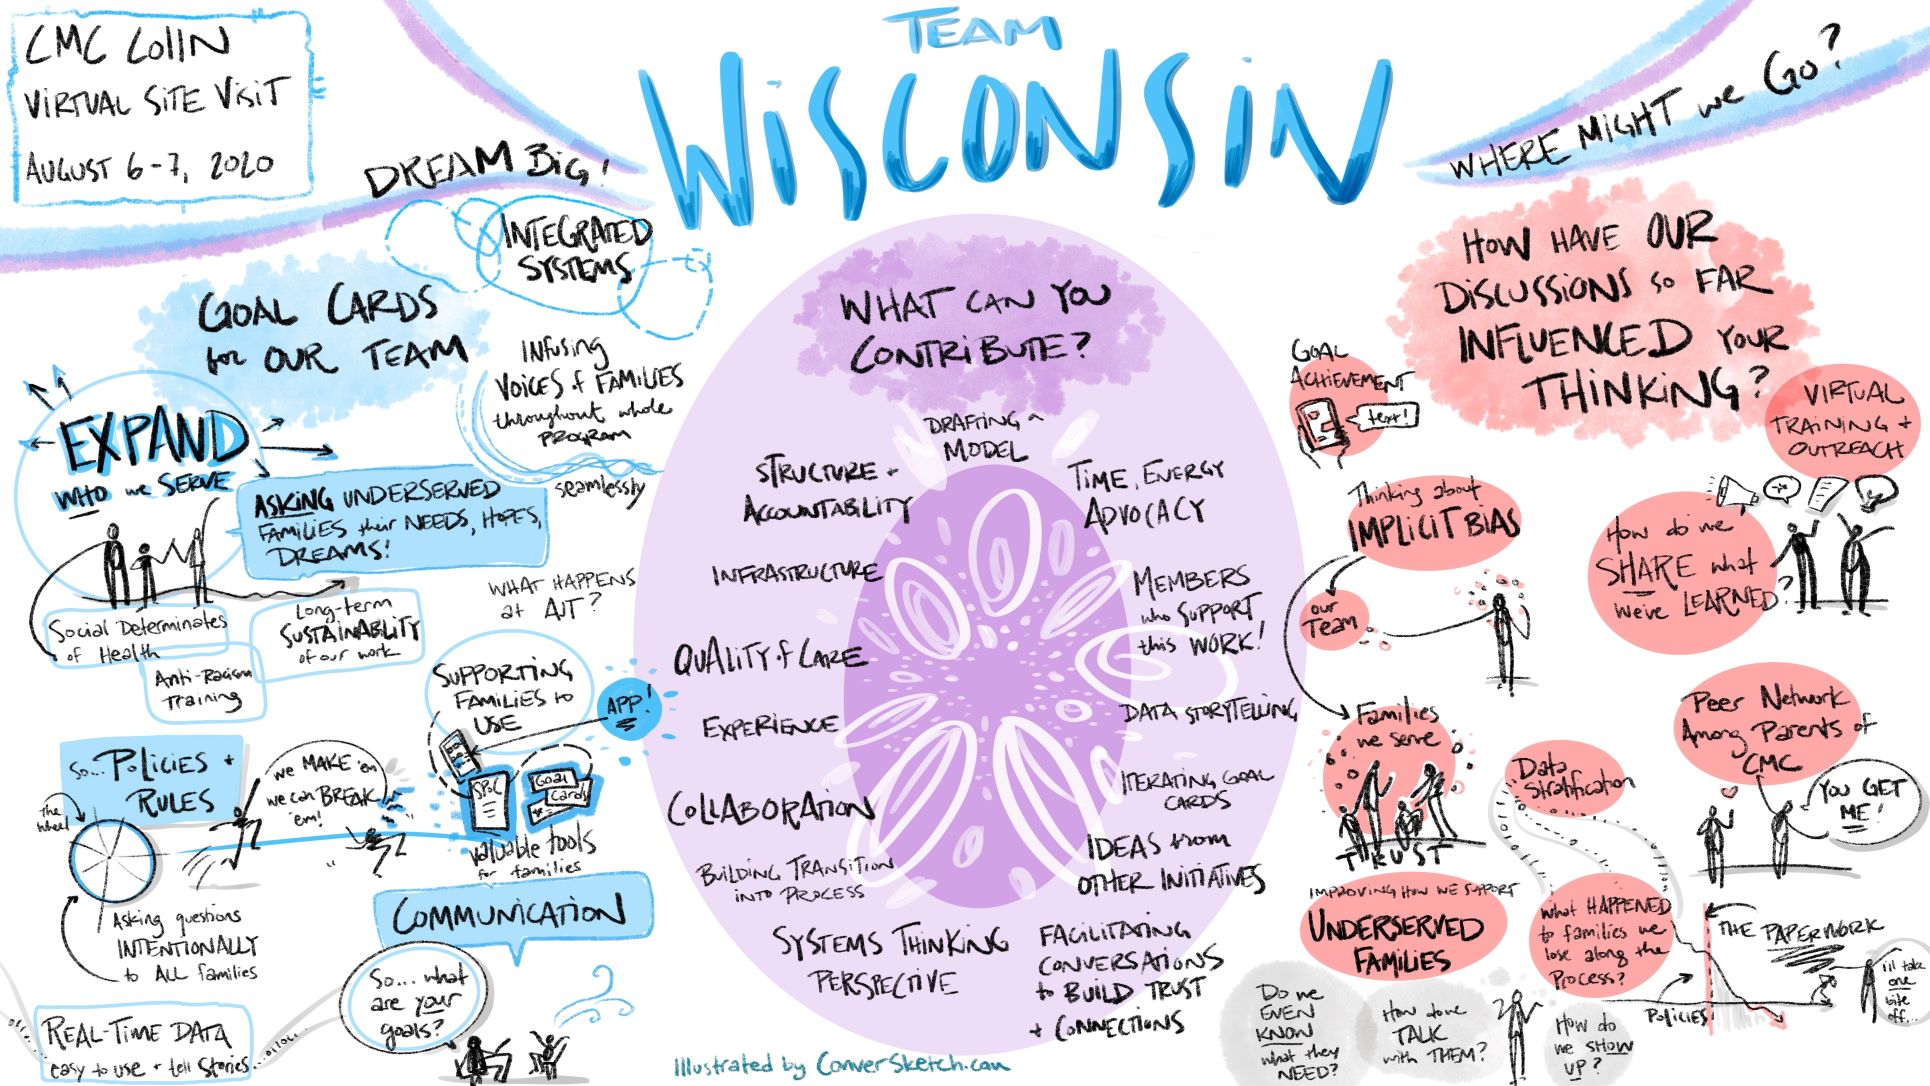 CMC CoIIN
VIRTUAL SITE VISIT
AUGUST 6-7, 2020
TEAM
WISCONSIN
DREAM BIG!
WHERE MIGHT we GO?
INTEGRATED
SYSTEMS
GOAL CARDS
for OUR TEAM
INfusing
VOICES of FAMILIES
throughout whole
PROGRAM
seamlessly
EXPAND
WHO we SERVE
ASKING UNDERSERVED
FAMILIES their NEEDS, HOPES,
DREAMS!
Social Determinates
of Health
Long-term
SUSTAINABILITY
of our work
Anti-Racism
Training
WHAT HAPPENS
at AJT?
SUPPORTING
FAMILIES to
USE
APP!
SPoC
Goal
Cards
valuable tools
for families
So... POLICIES +
RULES
The
Wheel
we MAKE 'em
we can BREAK
'em!
Asking questions
INTENTIONALLY
to ALL families
COMMUNICATION
So... what
are your
goals?
REAL-TIME DATA
easy to use + tell stories
WHAT CAN YOU
CONTRIBUTE?
DRAFTING a
MODEL
STRUCTURE +
ACCOUNTABILITY
INFRASTRUCTURE
QUALITY of CARE
EXPERIENCE
COLLABORATION
BUILDING TRANSITION
INTO PROCESS
SYSTEMS THINKING
PERSPECTIVE
TIME, ENERGY
ADVOCACY
MEMBERS
who SUPPORT
this WORK!
DATA STORYTELLING
ITERATING GOAL
CARDS
IDEAS from
OTHER INITIATIVES
FACILITATING
CONVERSATIONS
to BUILD TRUST
+ CONNECTIONS
Illustrated by ConverSketch.com
HOW HAVE OUR
DISCUSSIONS so FAR
INFLUENCED YOUR
THINKING?
GOAL
ACHIEVEMENT
text!
VIRTUAL
TRAINING +
OUTREACH
Thinking about
IMPLICIT BIAS
our
Team
How do we
SHARE what
we've LEARNED?
Families
we serve
TRUST
IMPROVING HOW WE SUPPORT
UNDERSERVED
FAMILIES
Data
Stratification
Peer Network
Among Parents of
CMC
YOU GET
ME!
what HAPPENED
to families we
lose along the
Process?
THE PAPERWORK
I'll take
one
bite
off...
Policies
Do we
EVEN
KNOW
what they
NEED?
How do we
TALK
with THEM?
How do
we SHOW
UP?